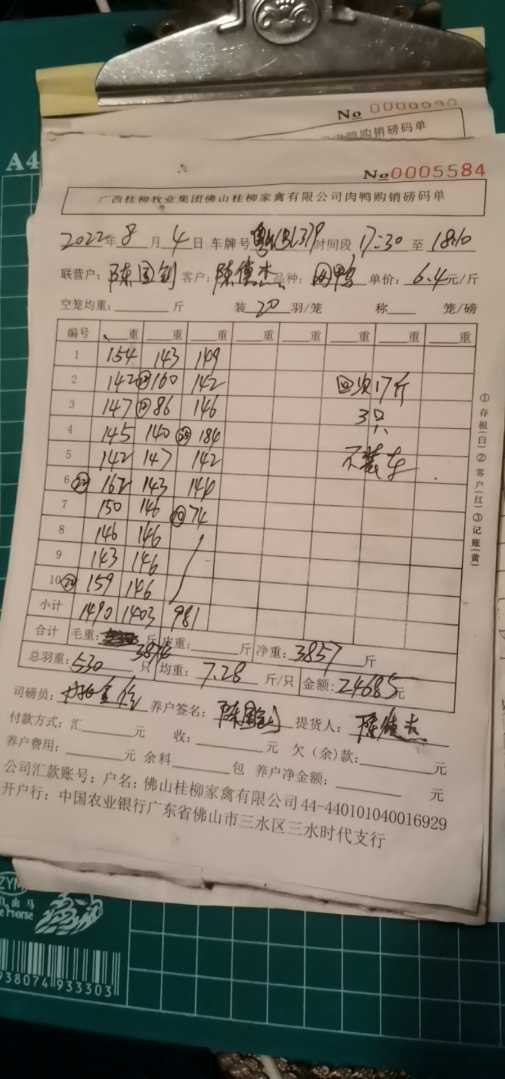 No 0000090
肉鸭购销磅码单
A4
No 0005584
广西桂柳牧业集团佛山桂柳家禽有限公司肉鸭购销磅码单
2022年 8 月 4 日 车牌号 时间段 17:30 至 18:10
联营户: 陈国钊 客户: 陈俊杰 品种: 肉鸭 单价: 6.4元/斤
空笼均重: 斤 装 20 羽/笼 称 笼/磅
编号 重 重 重 重 重 重 重
1 154 143 149
2 142 160 142 回次17斤
3 147 86 146 3只
4 145 140 184
5 142 147 142 不装车
6 22 162 143 144
7 150 146 10 74
8 146 146
9 143 146
10 159 146
小计 1490 1403 981
合计 毛重: 3874 斤 皮重: 斤 净重: 3857 斤
总羽重: 530 只 均重: 7.28 斤/只 金额: 24685元
司磅员: 养户签名: 陈国钊 提货人: 陈俊杰
付款方式: 汇 元 收: 元 欠(余)款: 元
养户费用: 元 余料 包 养户净金额: 元
公司汇款账号:户名:佛山桂柳家禽有限公司 44-440101040016929
开户行:中国农业银行广东省佛山市三水区三水时代支行
①存根(白)②客户(红)③记账(黄)
938074 933303